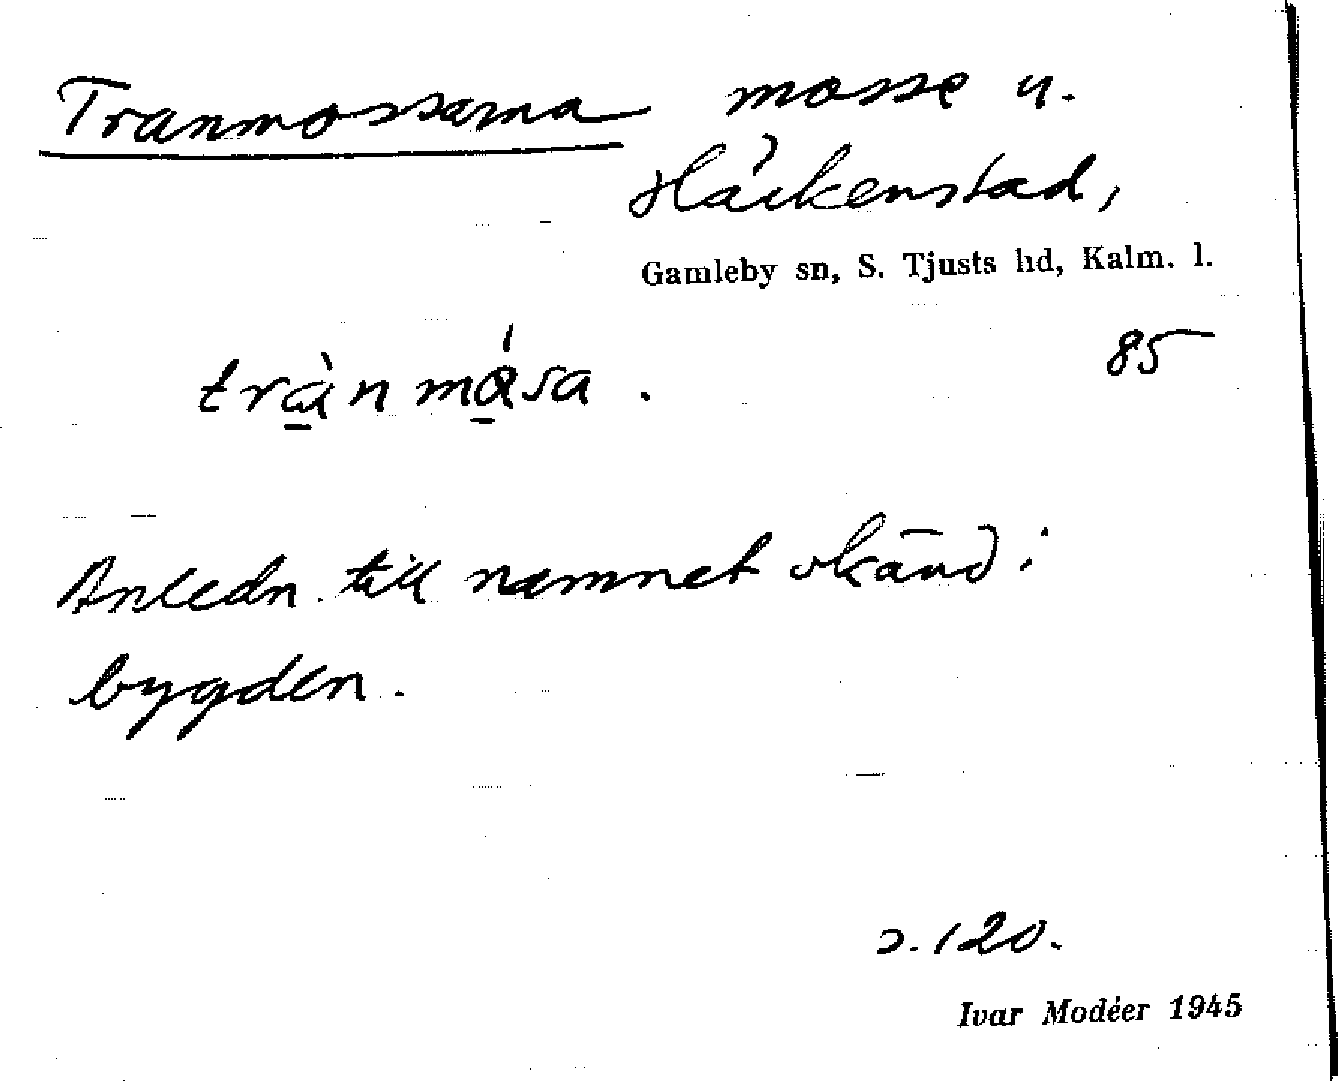 Tranmossarna mosse u.
Häckenstad,
Gamleby sn, S. Tjusts hd, Kalm. l.
85
trànmása.
Anledn. till namnet okänd i
bygden.
s. 120.
Ivar Modéer 1945